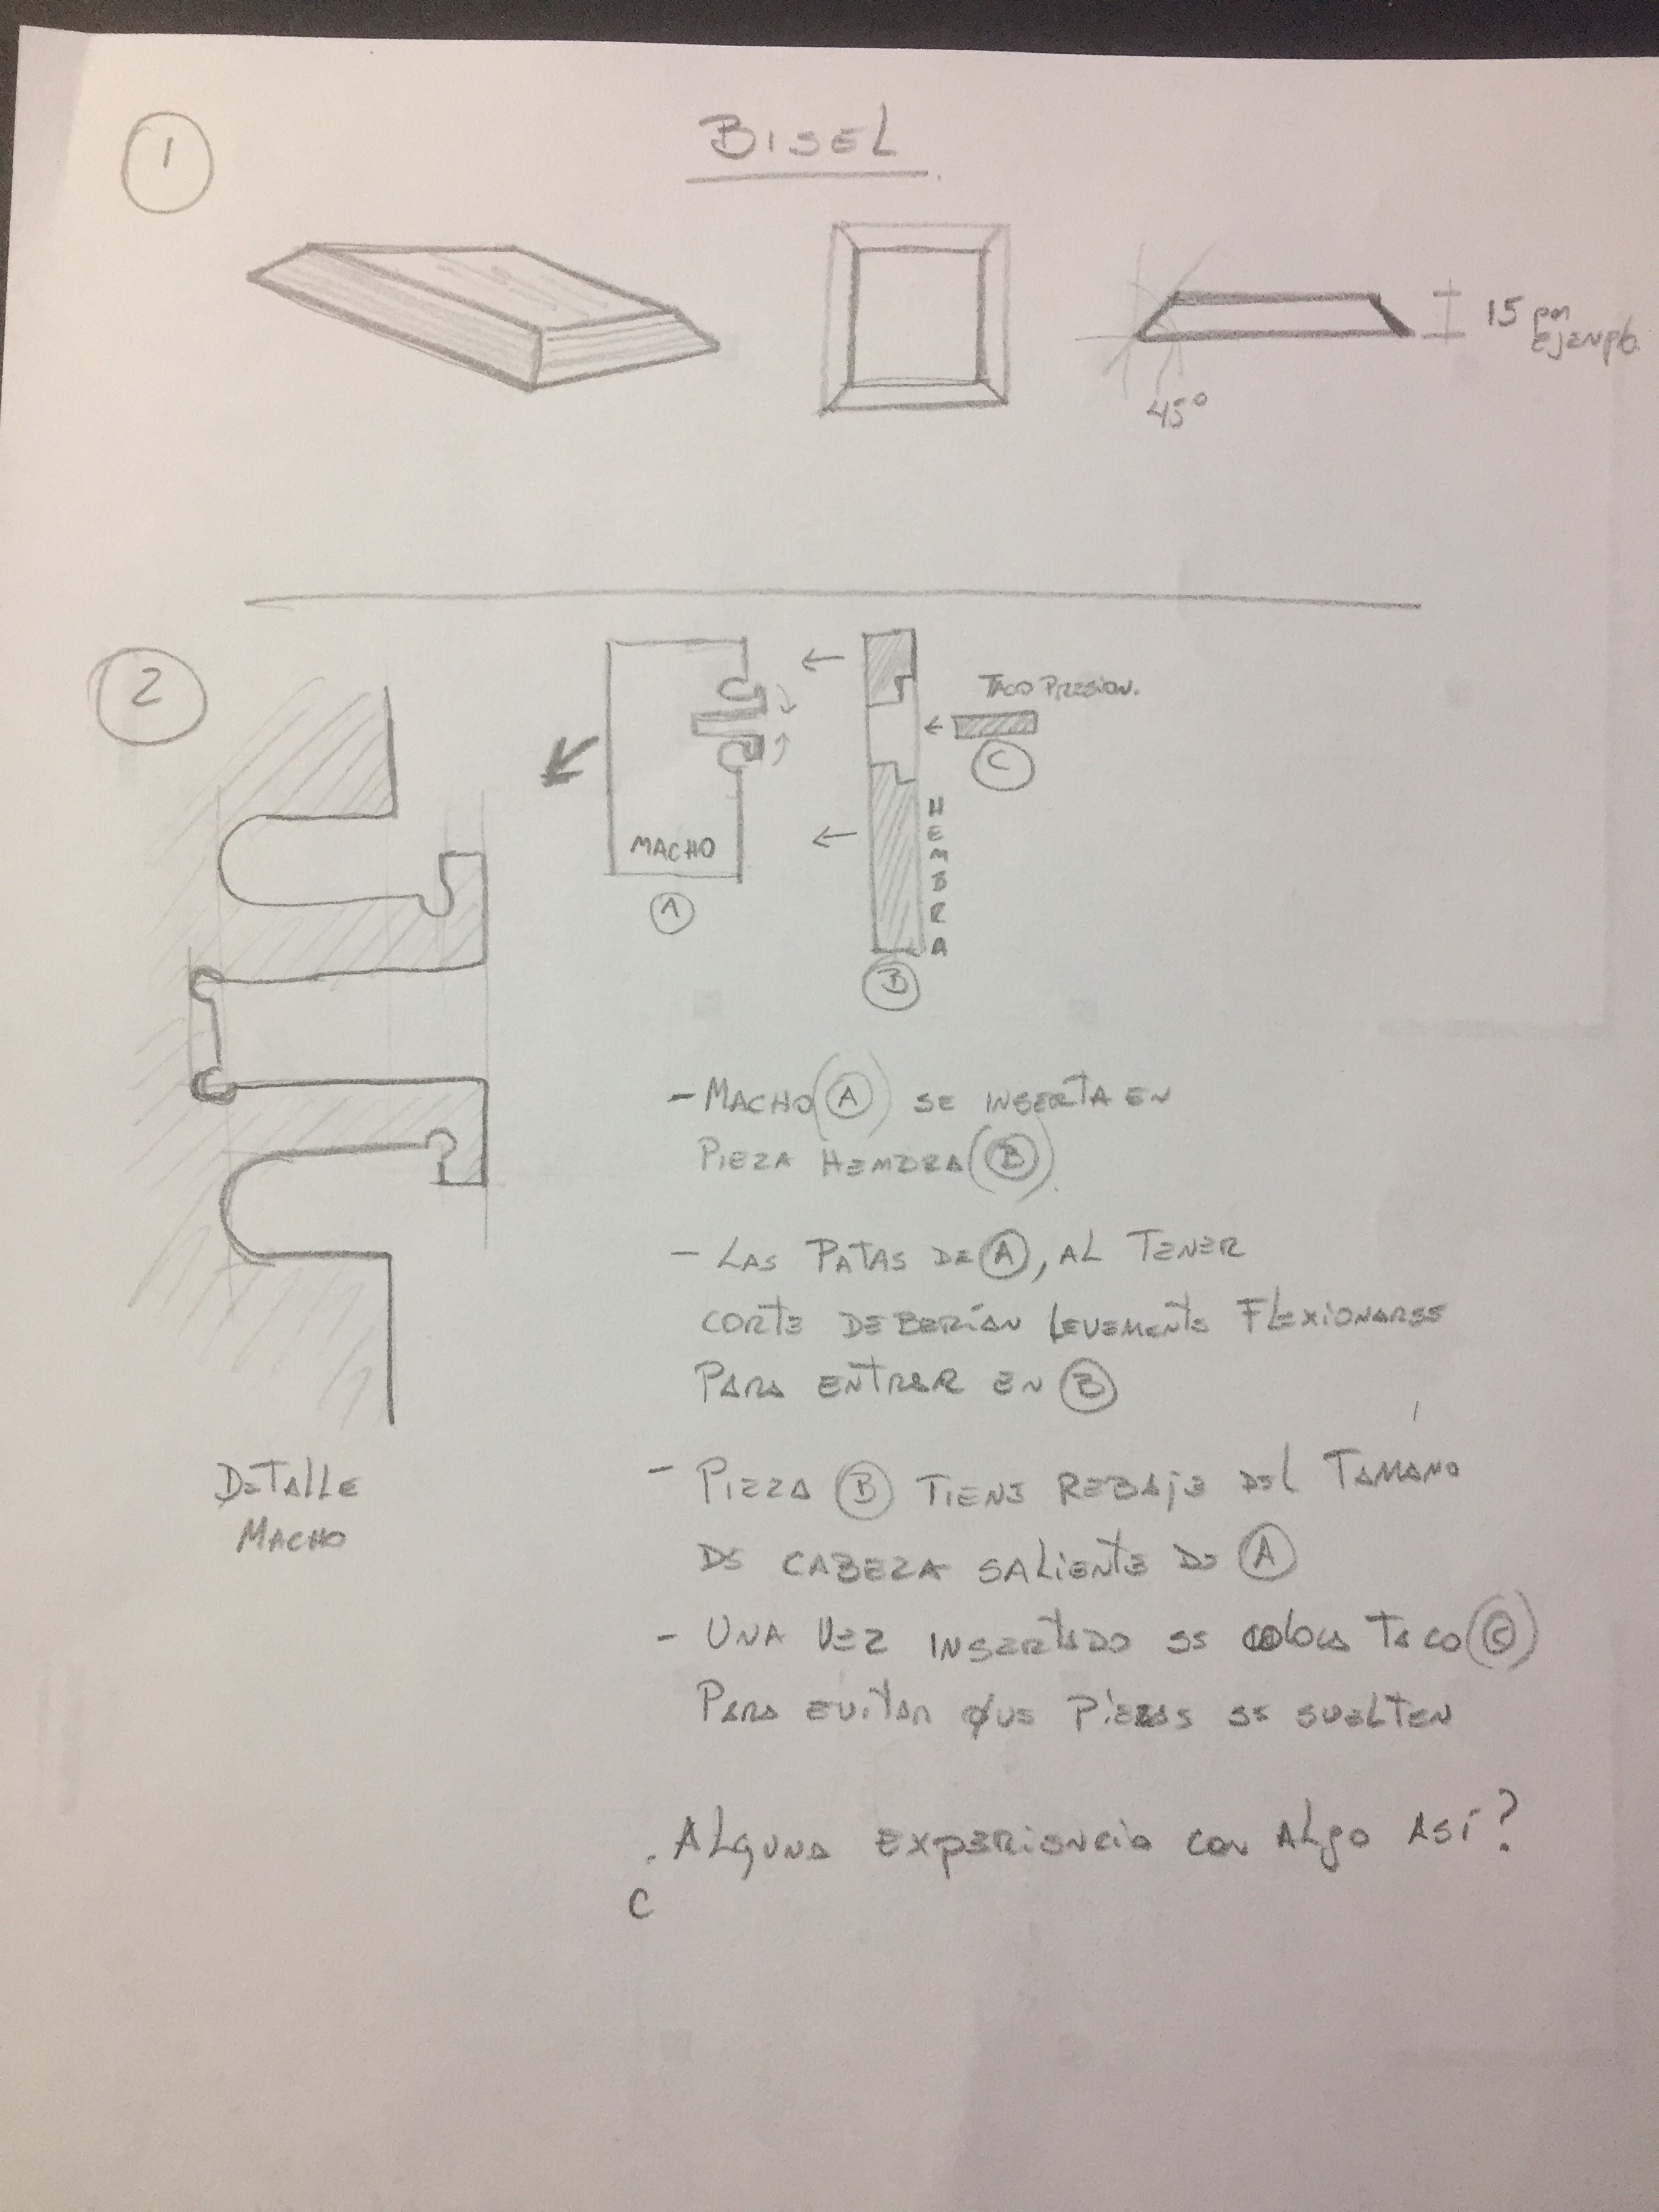 1
BISEL
15 por
EJEMPLO.
45°
2
TACO PRESION.
C
HEMBRA
MACHO
A
B
- MACHO (A) SE INSERTA EN
PIEZA HEMBRA (B).
- LAS PATAS DE A, AL TENER
CORTE DEBERÍAN LEVEMENTE FLEXIONARSE
PARA ENTRAR EN B
- PIEZA B TIENE REBAJE DEL TAMAÑO
DE CABEZA SALIENTE DE A
- UNA VEZ INSERTADO SE COLOCA TACO (C)
PARA EVITAR QUE PIEZAS SE SUELTEN
DETALLE
MACHO
¿ALGUNA EXPERIENCIA CON ALGO ASÍ?